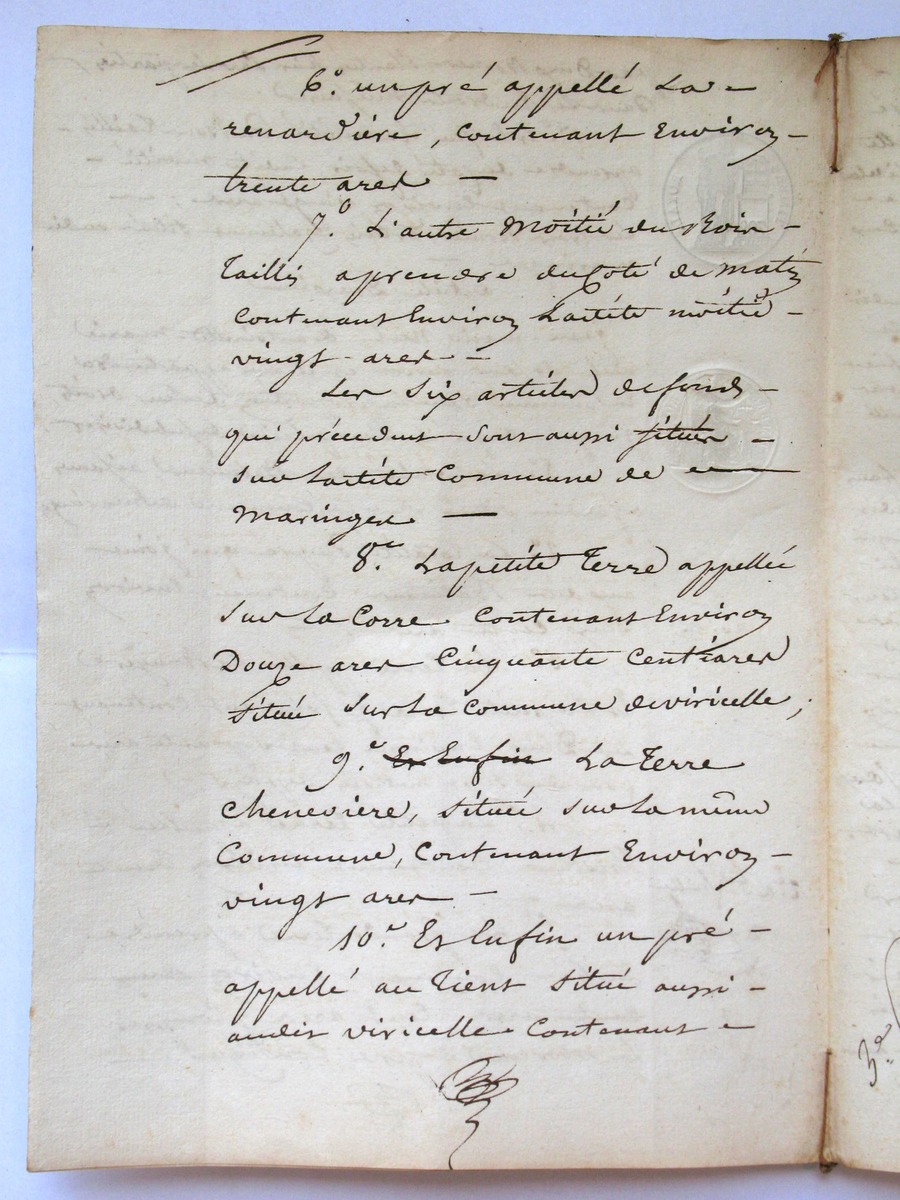 6.° un pré appellé La
renardiére, Contenant Environ
trente ares
7.° L'autre Moitié du Bois
Taillis a prendre du Coté de
Contenant Environ Ladite moitié
vingt ares
Les Six articles de fonds
qui précedent Sont aussi Situés
Sur Ladite Commune de
Maringes
8.° La petite Terre appellée
Sur La Corre Contenant Environ
Douze ares Cinquante Centiares
Située Sur La Commune de viricelle,
9.° Et Enfin La Terre
Cheneviere, Située Sur La même
Commune, Contenant Environ
vingt ares
10.° Et Enfin un pré
appellé au Tient Situé aussi
audit viricelle Contenant
3.e